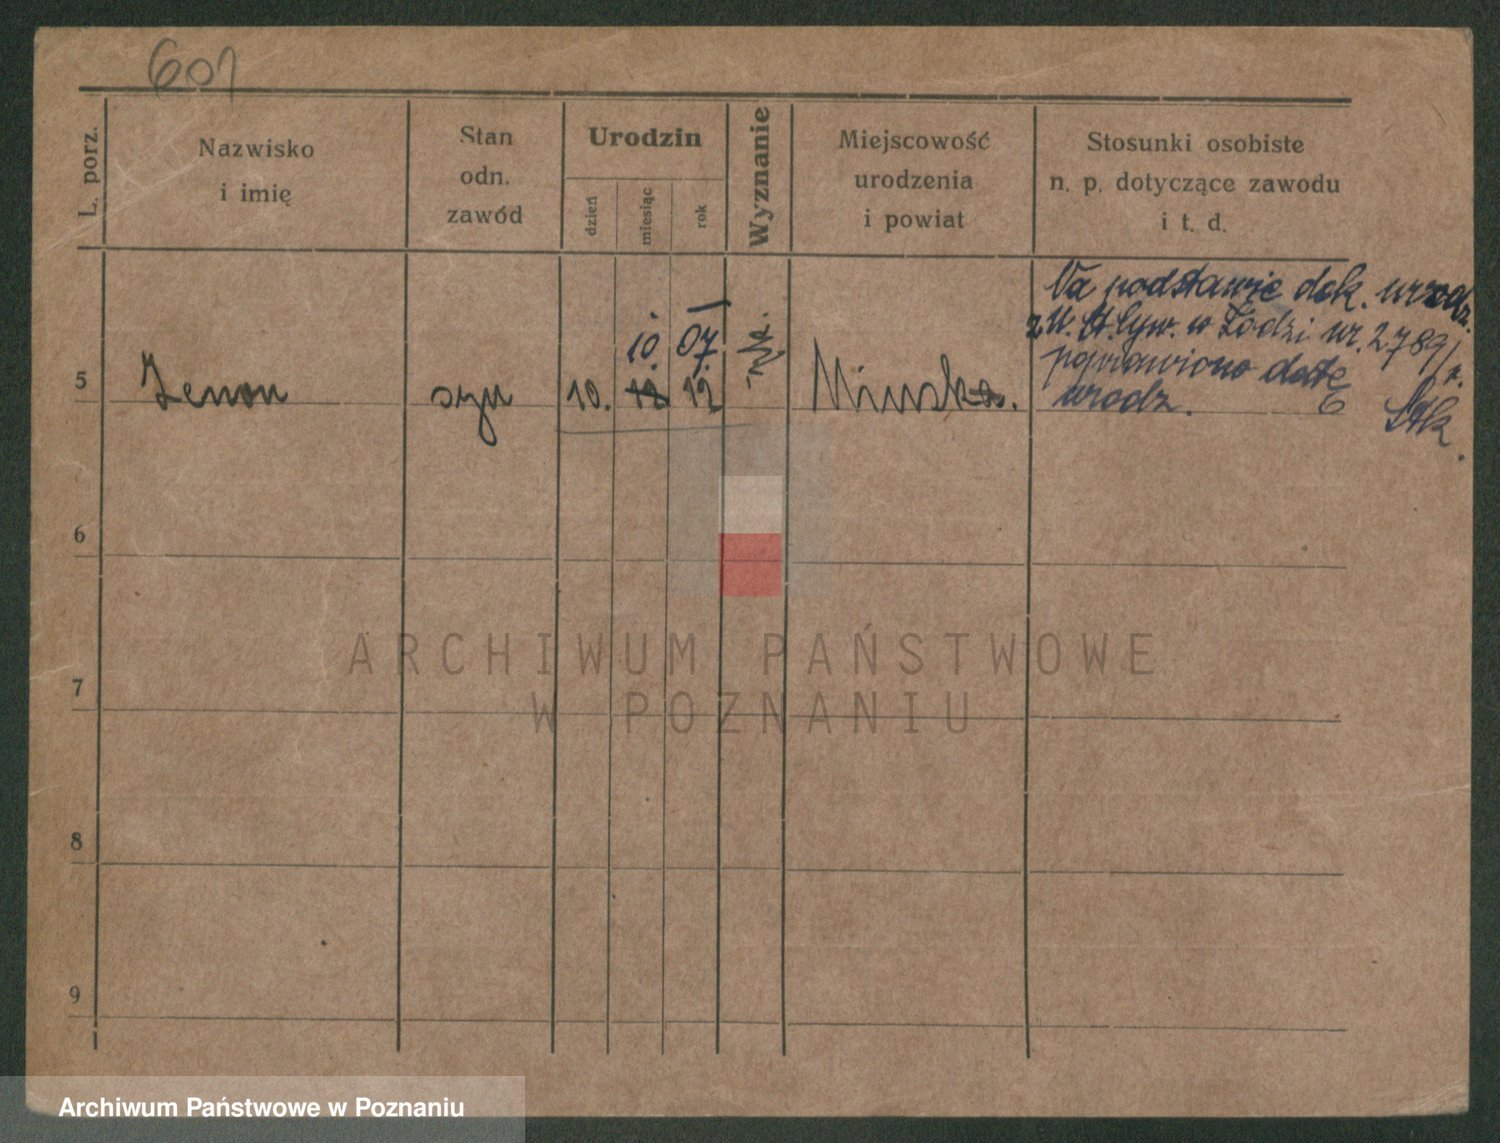 601
L. porz.
Nazwisko
i imię
Stan
odn.
zawód
Urodzin
dzień
miesiąc
rok
Wyznanie
Miejscowość
urodzenia
i powiat
Stosunki osobiste
n. p. dotyczące zawodu
i t. d.
5
Zenon
syn
10.
10.
12
07.
12
Na podstawie dok. urodz.
z U. St. Cyw. w Łodzi nr. 2789/
poprawiono datę
urodz.
6
ARCHIWUM PAŃSTWOWE
W POZNANIU
7
8
9
Archiwum Państwowe w Poznaniu